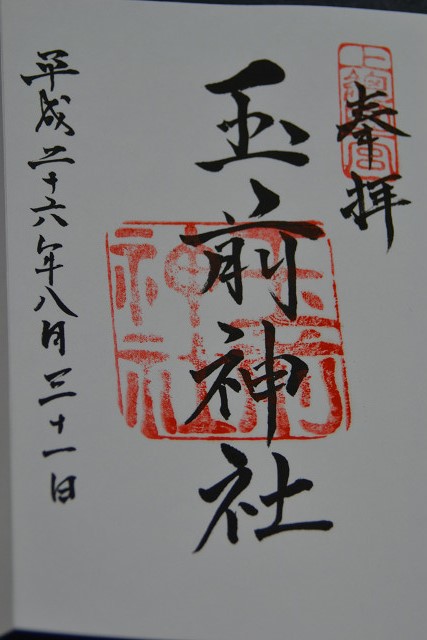 奉拝
上総一宮
玉前神社
玉前神社
平成二十六年八月三十一日